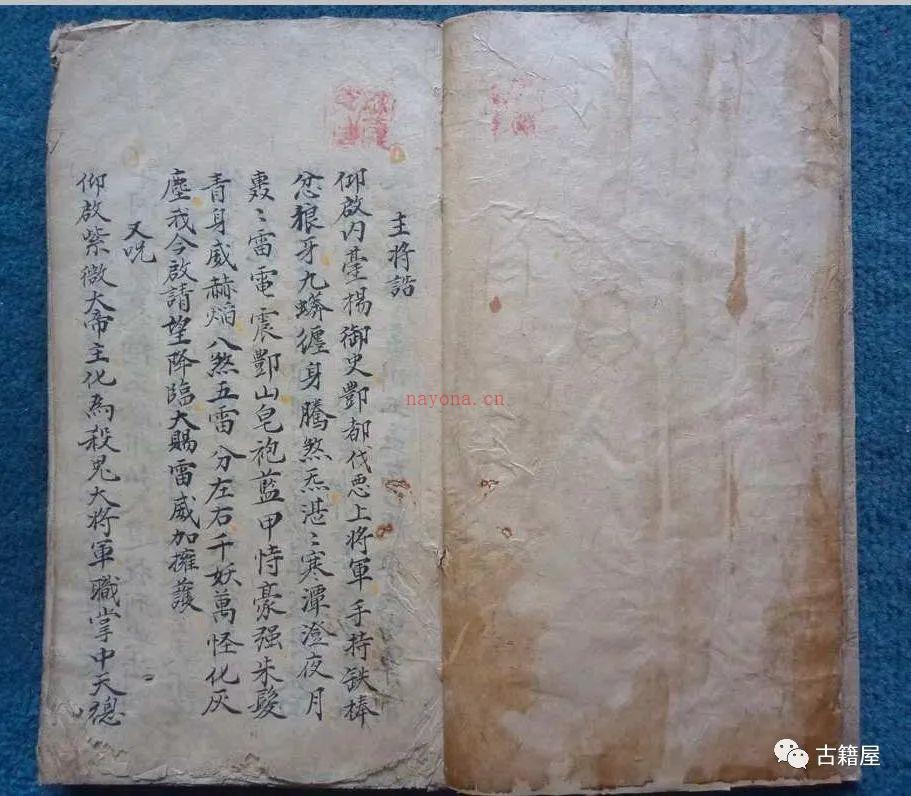 主將誥
仰啟內臺楊御史酆都伐惡上將軍手持鉄棒
忿狼牙九蟒纏身騰煞炁湛〻寒潭澄夜月
轟〻雷電震酆山皂袍藍甲恃豪强朱髮
青身威赫焰八煞五雷分左右千妖萬怪化灰
塵我今啟請望降臨大賜雷威加擁護
又咒
仰啟紫微大帝主化為殺鬼大將軍職掌中天總
nayona.cn
古籍屋